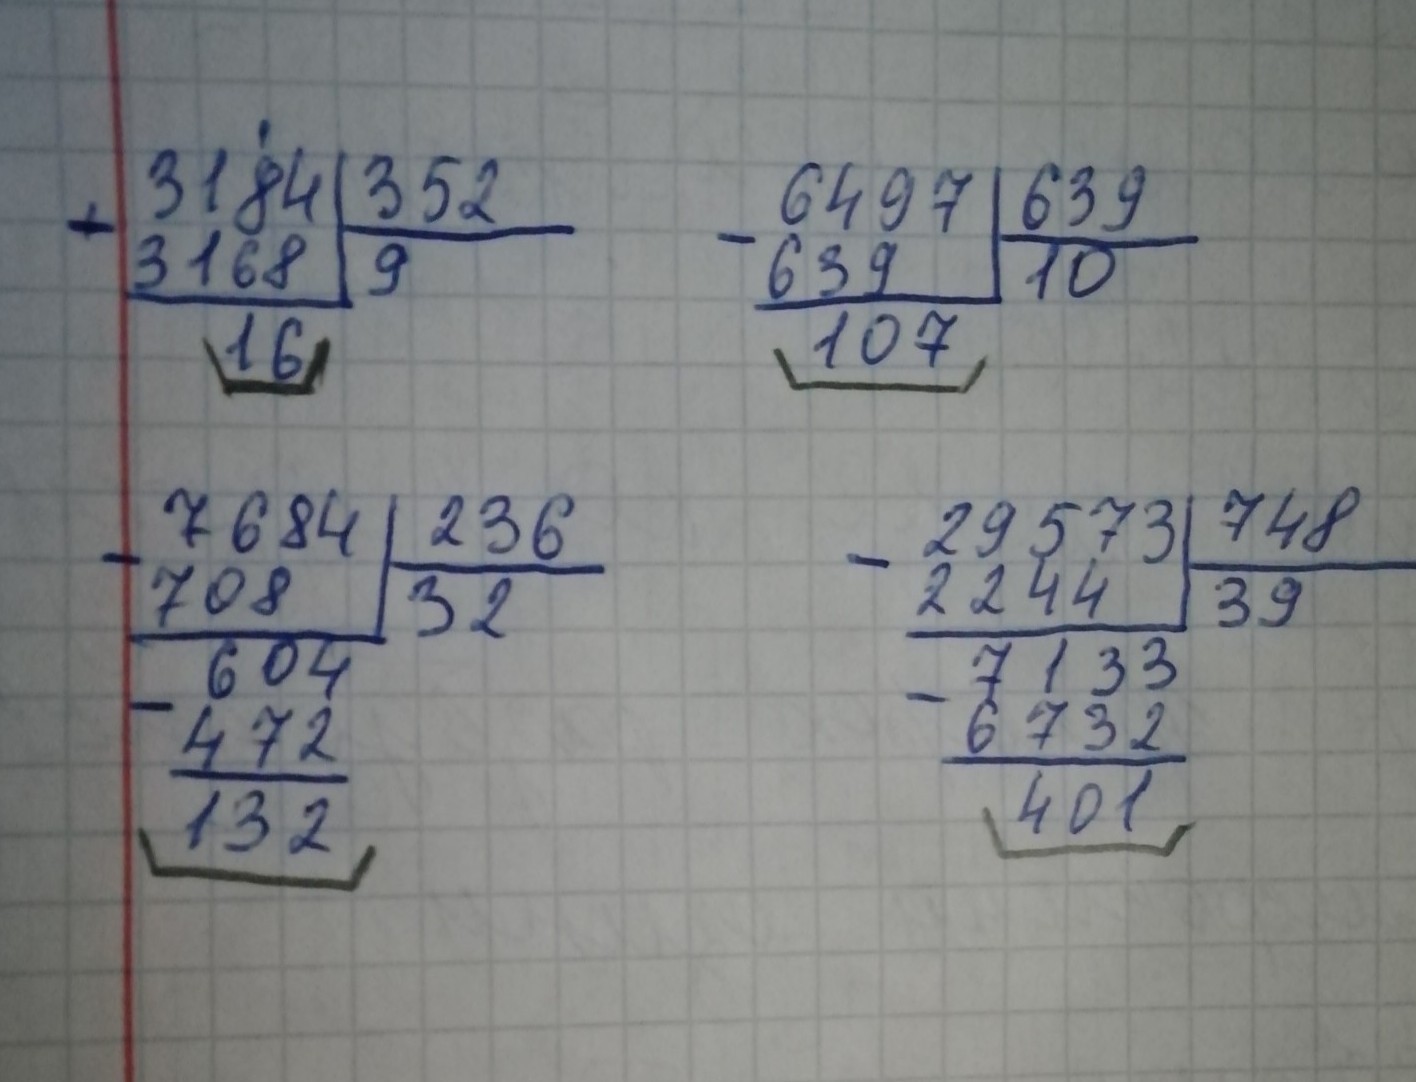 3184 352
+
3168 9
16
6497 639
-
639 10
107
7684 236
-
708 32
604
-
472
132
29573 748
-
2244 39
7133
-
6732
401